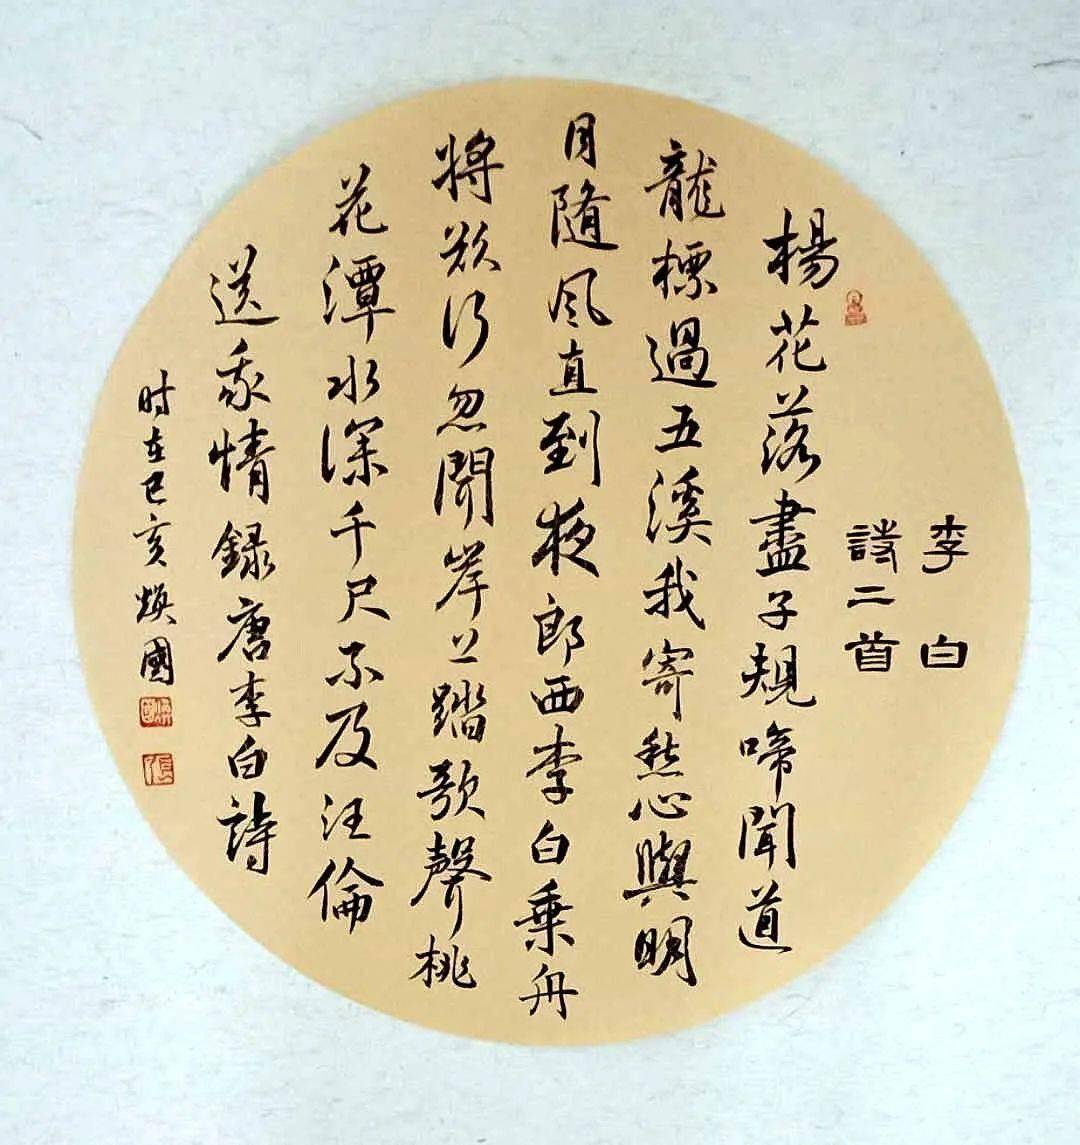 李白
詩二首
楊花落盡子規啼聞道
龍標過五溪我寄愁心與明
月隨风直到夜郎西李白乘舟
將欲行忽聞岸上踏歌聲桃
花潭水深千尺不及汪倫
送我情録唐李白詩
时在己亥煥國